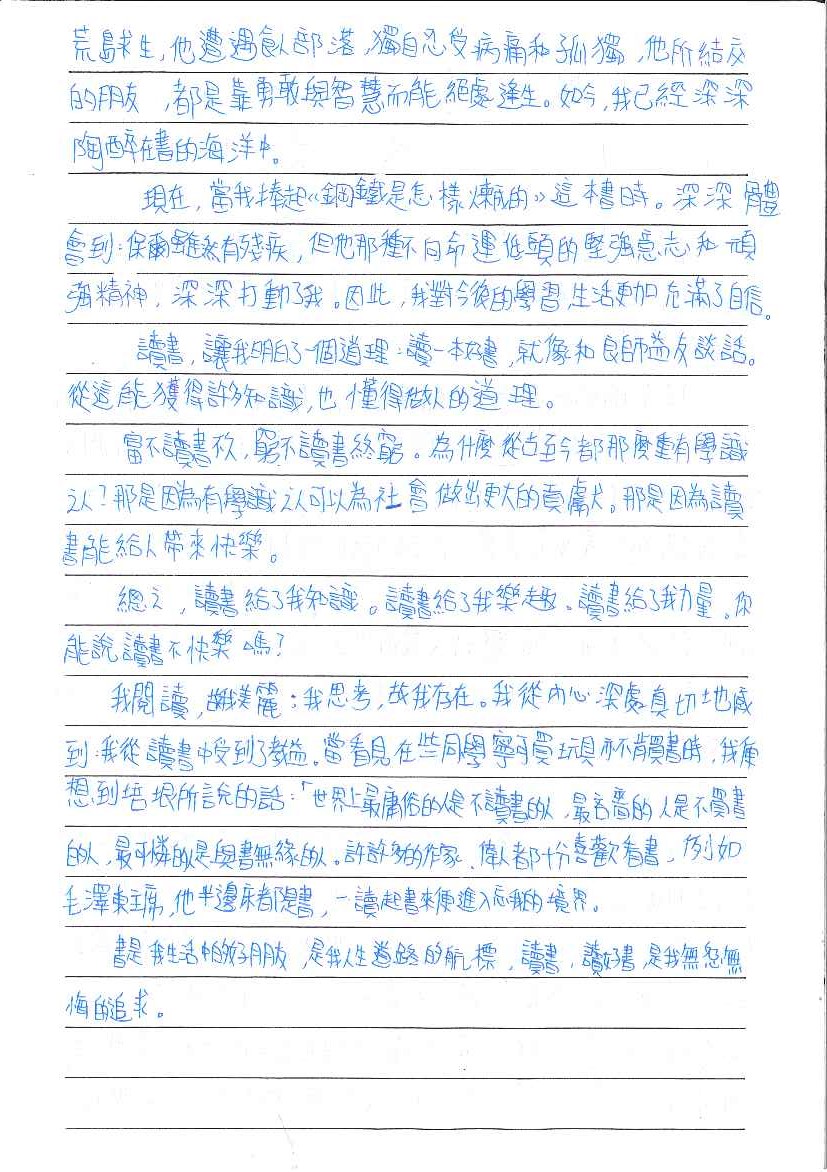 荒島求生,他遭遇食人部落,獨自忍受病痛和孤獨,他所結交
的朋友,都是靠勇敢與智慧而能絕處逢生。如今,我已經深深
陶醉在書的海洋中。
現在,當我捧起《鋼鐵是怎樣煉成的》這本書時。深深體
會到:保爾雖然有殘疾,但他那種不向命運低頭的堅強意志和頑
強精神,深深打動了我。因此,我對今後的學習,生活更加充滿了自信。
讀書,讓我明白了一個道理:讀一本好書,就像和良師益友談話。
從這能獲得許多知識,也懂得做人的道理。
富不讀書不久,窮不讀書終窮。為什麼從古至今都那麼重有學識
之人?那是因為有學識之人可以為社會做出更大的貢獻。那是因為讀
書能給人帶來快樂。
總之,讀書給了我知識。讀書給了我樂趣。讀書給了我力量。你
能說讀書不快樂嗎?
我閱讀,故我美麗;我思考,故我存在。我從內心深處真切地感
到:我從讀書中受到了教益。當看見有些同學寧可買玩具亦不肯買書時,我便
想到培根所說的話:「世界上最庸俗的人是不讀書的人,最吝嗇的人是不買書
的人,最可憐的人是與書無緣的人。許許多的作家、偉人都十分喜歡看書,例如
毛澤東主席,他半邊床都是書,一讀起書來便進入忘我的境界。
書是我生活中的好朋友,是我人生道路的航標,讀書,讀好書,是我無怨無
悔的追求。